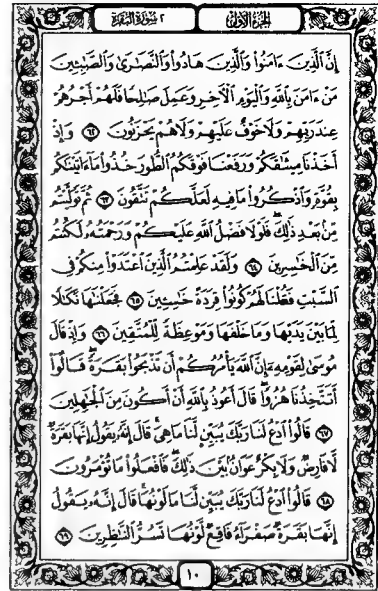 الجزء الأول
٢ سورة البقرة
إِنَّ الَّذِينَ ءَامَنُوا۟ وَالَّذِينَ هَادُوا۟ وَالنَّصَٰرَىٰ وَالصَّٰبِـِٔينَ
مَنْ ءَامَنَ بِاللَّهِ وَالْيَوْمِ الْءَاخِرِ وَعَمِلَ صَٰلِحًا فَلَهُمْ أَجْرُهُمْ
عِندَ رَبِّهِمْ وَلَا خَوْفٌ عَلَيْهِمْ وَلَا هُمْ يَحْزَنُونَ ٦٢ وَإِذْ
أَخَذْنَا مِيثَٰقَكُمْ وَرَفَعْنَا فَوْقَكُمُ الطُّورَ خُذُوا۟ مَآ ءَاتَيْنَٰكُم
بِقُوَّةٍ وَاذْكُرُوا۟ مَا فِيهِ لَعَلَّكُمْ تَتَّقُونَ ٦٣ ثُمَّ تَوَلَّيْتُم
مِّنۢ بَعْدِ ذَٰلِكَ ۖ فَلَوْلَا فَضْلُ اللَّهِ عَلَيْكُمْ وَرَحْمَتُهُۥ لَكُنتُم
مِّنَ الْخَٰسِرِينَ ٦٤ وَلَقَدْ عَلِمْتُمُ الَّذِينَ اعْتَدَوْا۟ مِنكُمْ فِى
السَّبْتِ فَقُلْنَا لَهُمْ كُونُوا۟ قِرَدَةً خَٰسِـِٔينَ ٦٥ فَجَعَلْنَٰهَا نَكَٰلًا
لِّمَا بَيْنَ يَدَيْهَا وَمَا خَلْفَهَا وَمَوْعِظَةً لِّلْمُتَّقِينَ ٦٦ وَإِذْ قَالَ
مُوسَىٰ لِقَوْمِهِۦٓ إِنَّ اللَّهَ يَأْمُرُكُمْ أَن تَذْبَحُوا۟ بَقَرَةً ۖ قَالُوٓا۟
أَتَتَّخِذُنَا هُزُوًا ۖ قَالَ أَعُوذُ بِاللَّهِ أَنْ أَكُونَ مِنَ الْجَٰهِلِينَ
٦٧ قَالُوا۟ ادْعُ لَنَا رَبَّكَ يُبَيِّن لَّنَا مَا هِىَ ۚ قَالَ إِنَّهُۥ يَقُولُ إِنَّهَا بَقَرَةٌ
لَّا فَارِضٌ وَلَا بِكْرٌ عَوَانٌۢ بَيْنَ ذَٰلِكَ ۖ فَافْعَلُوا۟ مَا تُؤْمَرُونَ
٦٨ قَالُوا۟ ادْعُ لَنَا رَبَّكَ يُبَيِّن لَّنَا مَا لَوْنُهَا ۚ قَالَ إِنَّهُۥ يَقُولُ
إِنَّهَا بَقَرَةٌ صَفْرَآءُ فَاقِعٌ لَّوْنُهَا تَسُرُّ النَّٰظِرِينَ ٦٩
١٠